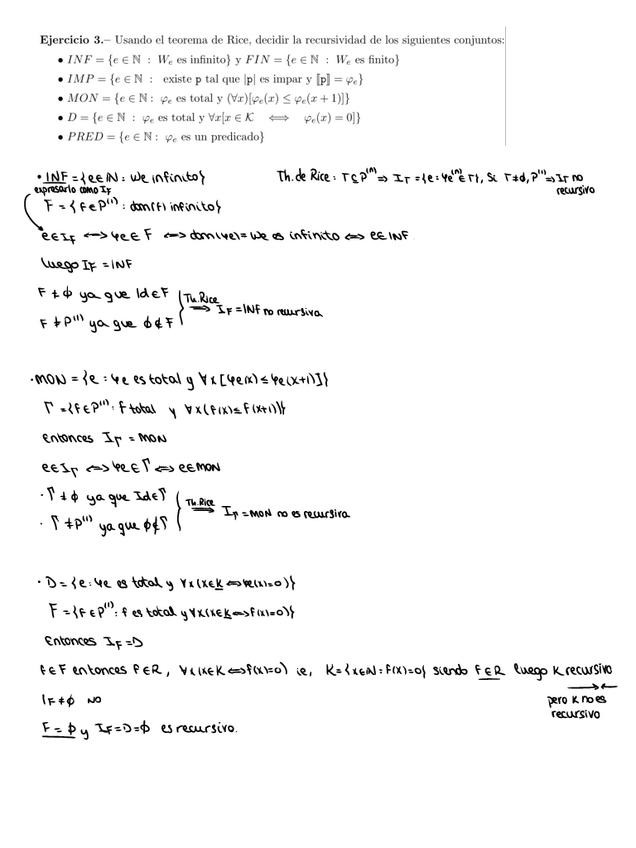 Ejercicio 3.– Usando el teorema de Rice, decidir la recursividad de los siguientes conjuntos:
• INF = {e ∈ ℕ : W_e es infinito} y FIN = {e ∈ ℕ : W_e es finito}
• IMP = {e ∈ ℕ : existe p tal que |p| es impar y ⟦p⟧ = φ_e}
• MON = {e ∈ ℕ : φ_e es total y (∀x)[φ_e(x) ≤ φ_e(x + 1)]}
• D = {e ∈ ℕ : φ_e es total y ∀x[x ∈ K ⟺ φ_e(x) = 0]}
• PRED = {e ∈ ℕ : φ_e es un predicado}
• INF = {e ∈ ℕ : We infinito}
Th. de Rice: Γ ⊆ P^(n) ⇒ I_Γ = {e : φe^(n) ∈ Γ}, Si Γ ≠ ∅, P^(n) ⇒ I_Γ no recursivo
expresarlo como I_F
F = {f ∈ P^(1) : dom(f) infinito}
e ∈ I_F ⟷ φe ∈ F ⟷ dom(φe) = We es infinito ⟺ e ∈ INF
luego I_F = INF
F ≠ ∅ ya que Id ∈ F
Th. Rice ⇒ I_F = INF no recursiva
F ≠ P^(1) ya que ∅ ∉ F
• MON = {e : φe es total y ∀x [φe(x) ≤ φe(x+1)]}
Γ = {f ∈ P^(1) : f total y ∀x (f(x) ≤ f(x+1))}
entonces I_Γ = MON
e ∈ I_Γ ⟺ φe ∈ Γ ⟺ e ∈ MON
• Γ ≠ ∅ ya que Id ∈ Γ
Th. Rice ⇒ I_Γ = MON no es recursiva
• Γ ≠ P^(1) ya que ∅ ∉ Γ
• D = {e : φe es total y ∀x (x ∈ K ⟺ φe(x) = 0)}
F = {f ∈ P^(1) : f es total y ∀x (x ∈ K ⟺ f(x) = 0)}
Entonces I_F = D
f ∈ F entonces f ∈ R, ∀x (x ∈ K ⟺ f(x) = 0) ie, K = {x ∈ ℕ : f(x) = 0} siendo f ∈ R luego K recursivo
→←
I_F ≠ ∅ NO
pero K no es recursivo
F = ∅ y I_F = D = ∅ es recursivo.